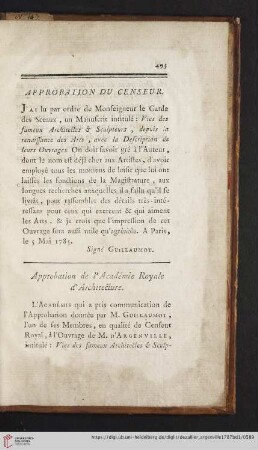 495
APPROBATION DU CENSEUR.
J'AI lu par ordre de Monseigneur le Garde
des Sceaux, un Manuscrit intitulé : Vies des
fameux Architectes & Sculpteurs, depuis la
renaissance des Arts, avec la Description de
leurs Ouvrages. On doit savoir gré à l'Auteur,
dont le nom est déjà cher aux Artistes, d'avoir
employé tous les momens de loisir que lui ont
laissés les fonctions de la Magistrature, aux
longues recherches auxquelles il a fallu qu'il se
livrât, pour rassembler des détails très-inté-
ressans pour ceux qui exercent & qui aiment
les Arts. & je crois que l'impression de cet
Ouvrage sera aussi utile qu'agréable. A Paris,
le 5 Mai 1785.
Signé GUILLAUMOT.
Approbation de l'Académie Royale
d'Architecture.
L'ACADÉMIE qui a pris communication de
l'Approbation donnée par M. GUILLAUMOT,
l'un de ses Membres, en qualité de Censeur
Royal, à l'Ouvrage de M. D'ARGENVILLE,
intitulé : Vies des fameux Architectes & Sculp-